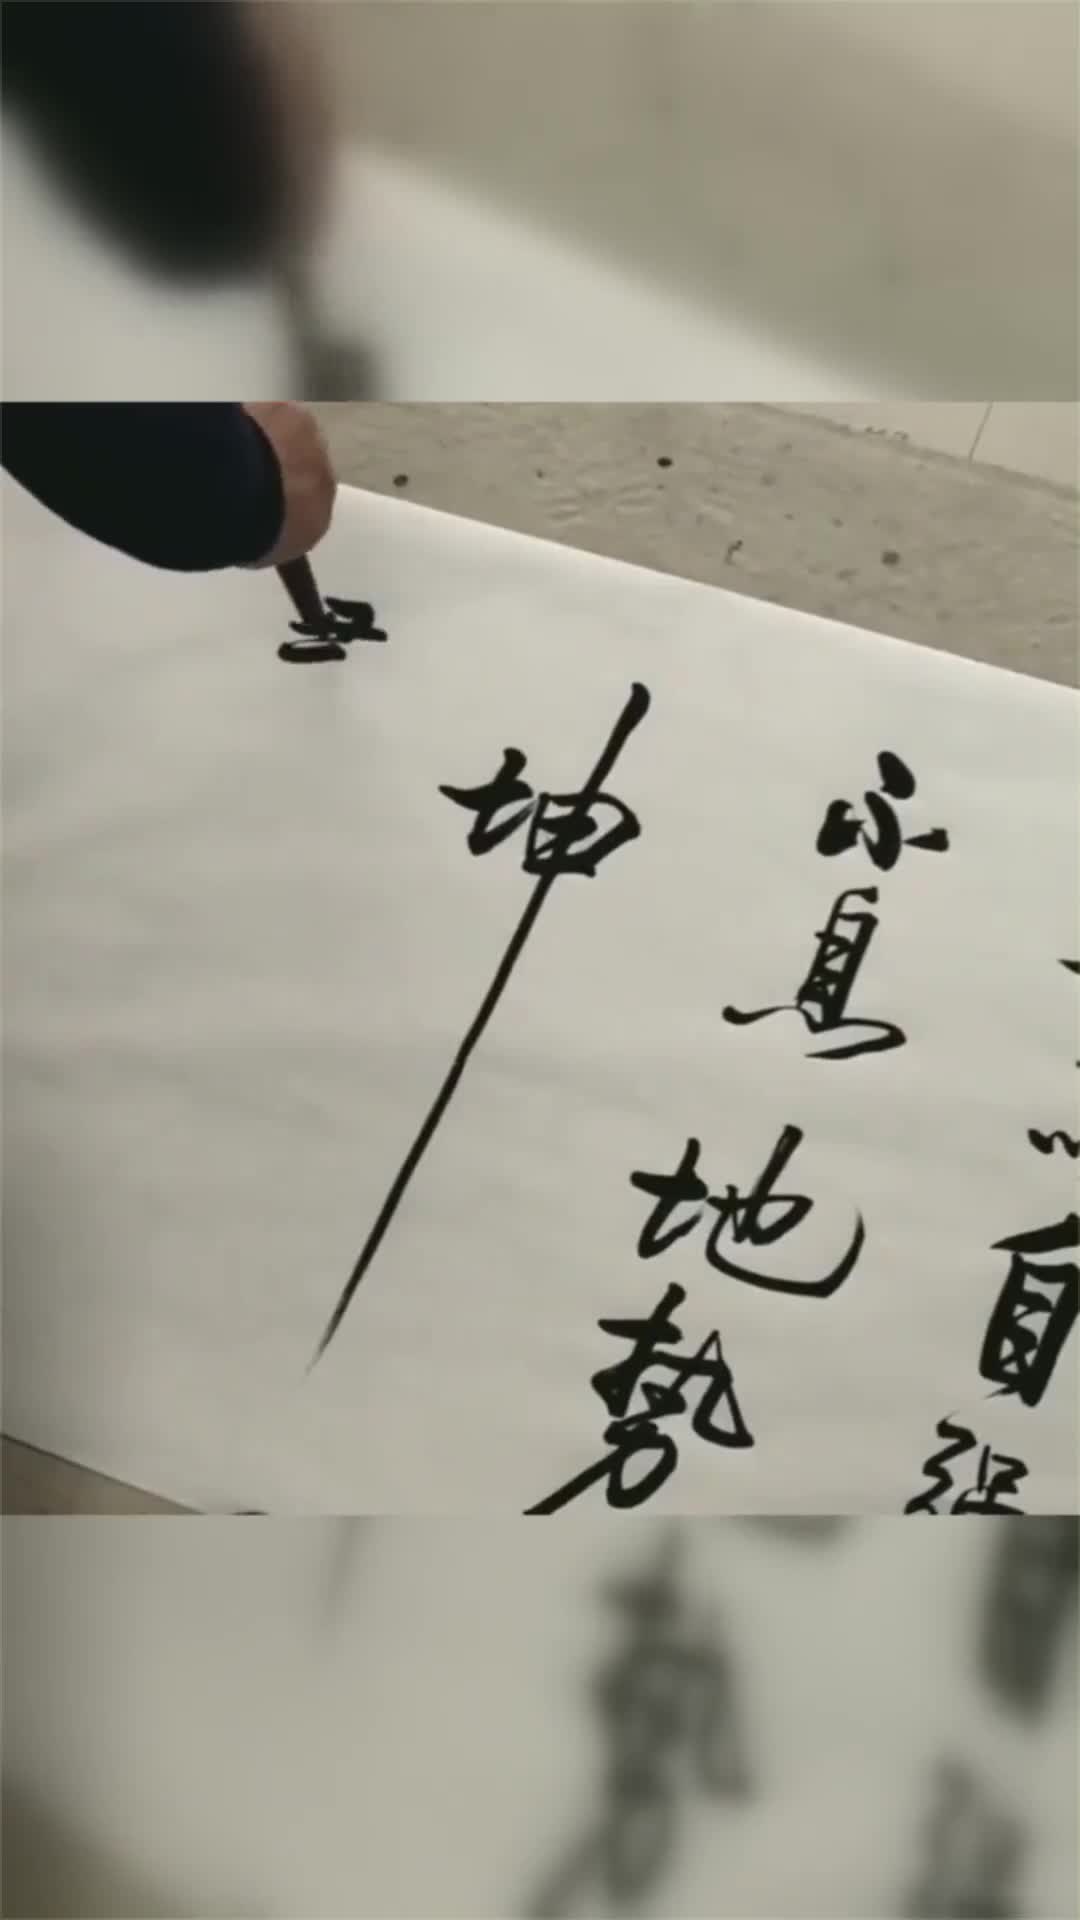 自强
不息
地势
坤